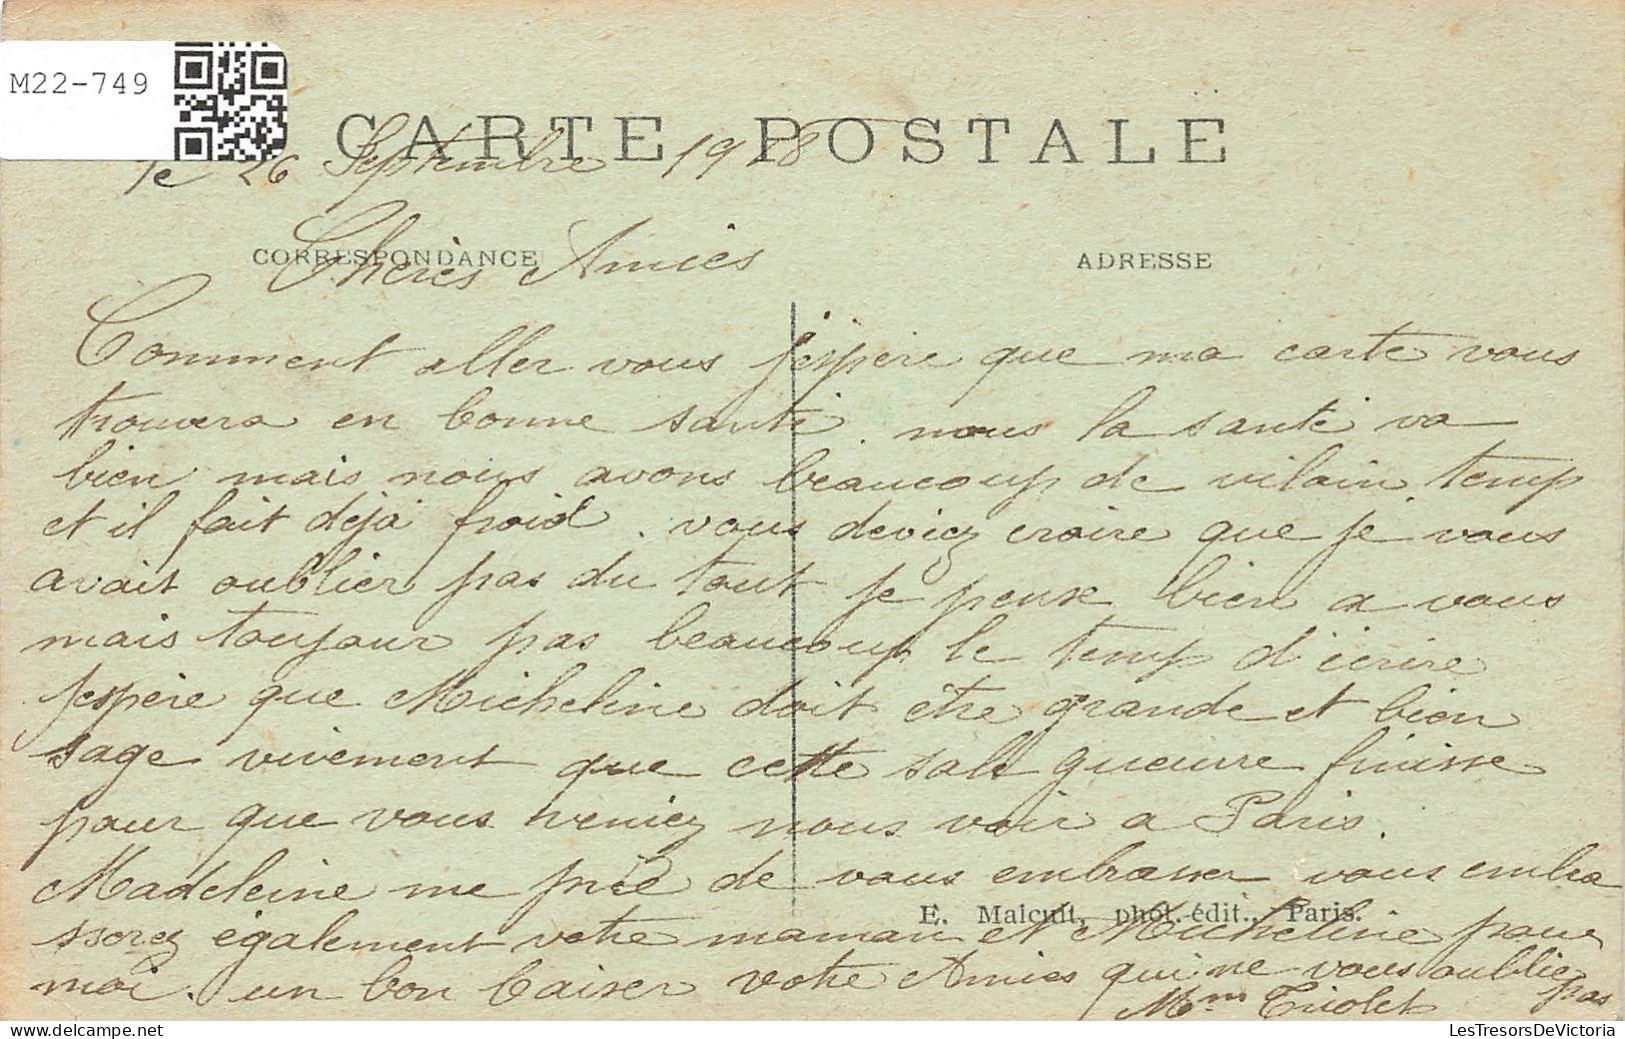 M22-749
CARTE POSTALE
le 26 Septembre 1918
CORRESPONDANCE
ADRESSE
Chères Amies
Comment aller vous j'espère que ma carte vous
trouvera en bonne santé. nous la santé va
bien mais nous avons beaucoup de vilain temp
et il fait déjà froid. vous deviez croire que je vous
avait oublier pas du tout je pense bien a vous
mais toujour pas beaucoup le temp d'écrire
j'espère que Micheline doit être grande et bien
sage vivement que cette sale gueurre finisse
pour que vous veniez nous voir a Paris.
Madeleine me prie de vous embrasser vous embra
sserez également votre maman et Micheline pour
E. Malcuit, phot.-édit., Paris.
moi. un bon baiser votre Amies qui ne vous oubliez pas
Mm Triolet
LesTresorsDeVictoria